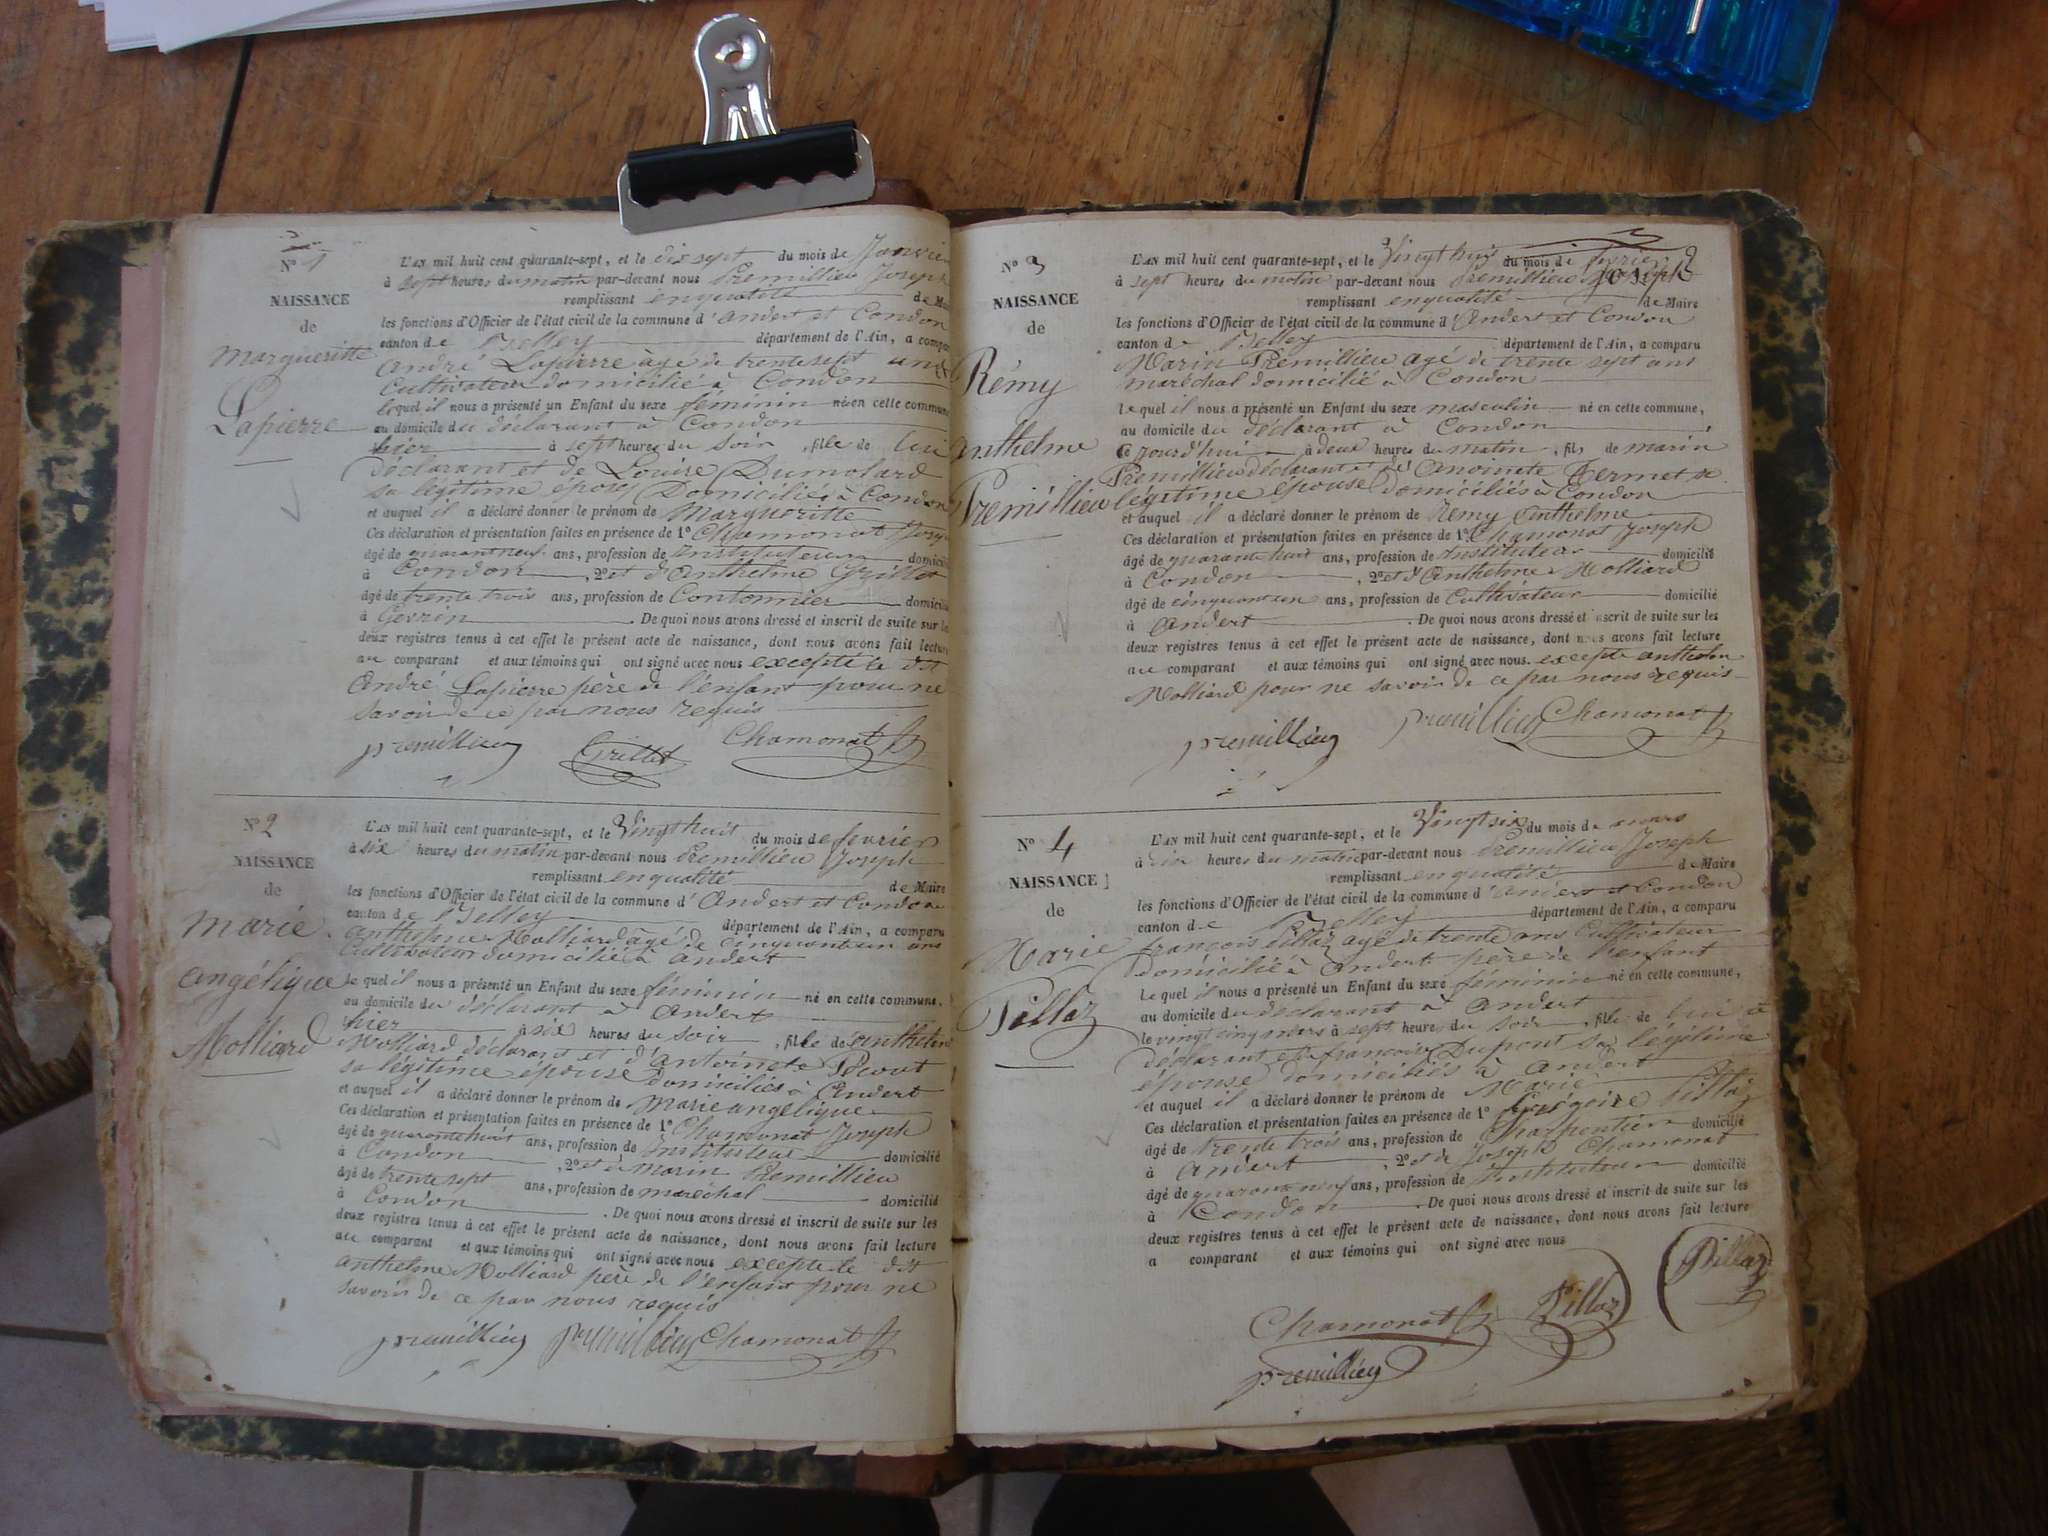 N° 1
NAISSANCE
de
Margueritte
Lapierre
L'AN mil huit cent quarante-sept, et le dix sept du mois de Janvier
à sept heures du matin par-devant nous Premillieu Joseph
remplissant en qualité de Maire
les fonctions d'Officier de l'état civil de la commune d'Andert et Condon
canton de Belley département de l'Ain, a comparu
André Lapierre âgé de trente sept ans
Cultivateur domicilié à Condon
lequel il nous a présenté un Enfant du sexe féminin né en cette commune
au domicile du déclarant à Condon
hier à sept heures du soir, fille de lui
déclarant et de Louise Dumolard
sa légitime épouse Domiciliés à Condon
et auquel il a déclaré donner le prénom de Margueritte
Ces déclaration et présentation faites en présence de 1° Chamonat Joseph
âgé de quarant neuf ans, profession de instituteur domicilié
à Condon, 2° et d'Anthelme Grillet
âgé de trente trois ans, profession de Contonnier domicilié
à Gevrin. De quoi nous avons dressé et inscrit de suite sur les
deux registres tenus à cet effet le présent acte de naissance, dont nous avons fait lecture
au comparant et aux témoins qui ont signé avec nous excepté le dit
André Lapierre père de l'enfant pour ne
savoir de ce par nous requis
premillieu Grillet Chamonat
N° 2
NAISSANCE
de
Marie
angélique
Molliard
L'AN mil huit cent quarante-sept, et le Vingt huit du mois de fevrier
à six heures du matin par-devant nous Premillieu Joseph
remplissant en qualité de Maire
les fonctions d'Officier de l'état civil de la commune d'Andert et Condon
canton de Belley département de l'Ain, a comparu
anthelme Molliard âgé de cinquantun ans
Cultivateur domicilié à andert
le quel il nous a présenté un Enfant du sexe féminin né en cette commune,
au domicile du déclarant à Andert
hier à six heures du soir, fille de Anthelme
Molliard déclarant et d'Antoinete
sa légitime épouse domiciliés à Andert
et auquel il a déclaré donner le prénom de Marie angelique
Ces déclaration et présentation faites en présence de 1° Chamonat Joseph
âgé de quarante huit ans, profession de Instituteur domicilié
à Condon, 2° et de Marin Premillieu
âgé de trente sept ans, profession de maréchal domicilié
à Condon. De quoi nous avons dressé et inscrit de suite sur les
deux registres tenus à cet effet le présent acte de naissance, dont nous avons fait lecture
au comparant et aux témoins qui ont signé avec nous excepté le dit
anthelme Molliard père de l'enfant pour ne
savoir de ce par nous requis
premillieu premillieu Chamonat
N° 3
NAISSANCE
de
Rémy
anthelme
Premillieu
L'AN mil huit cent quarante-sept, et le Vingt huit du mois de fevrier
à sept heures du matin par-devant nous Premillieu Joseph
remplissant en qualité de Maire
les fonctions d'Officier de l'état civil de la commune d'Andert et Condon
canton de Belley département de l'Ain, a comparu
Marin Premillieu agé de trente sept ans
maréchal domicilié à Condon
Le quel il nous a présenté un Enfant du sexe masculin né en cette commune,
au domicile du déclarant à Condon
Ce jourd'hui à deux heures du matin, fils de marin
Premillieu déclarant et d'Anoinete Termet sa
légitime épouse domiciliés à Condon
et auquel il a déclaré donner le prénom de Rémy Anthelme
Ces déclaration et présentation faites en présence de 1° Chamonat Joseph
âgé de quarante huit ans, profession de Instituteur domicilié
à Condon, 2° et d'Anthelme Molliard
âgé de cinquantun ans, profession de Cultivateur domicilié
à Andert. De quoi nous avons dressé et inscrit de suite sur les
deux registres tenus à cet effet le présent acte de naissance, dont nous avons fait lecture
au comparant et aux témoins qui ont signé avec nous. excepté anthelme
Molliard pour ne savoir de ce par nous requis
premillieu premillieu Chamonat
N° 4
NAISSANCE
de
Marie
Pillaz
L'AN mil huit cent quarante-sept, et le Vingt six du mois de mars
à six heures du matin par-devant nous Premillieu Joseph
remplissant en qualité de Maire
les fonctions d'Officier de l'état civil de la commune d'Andert et Condon
canton de Belley département de l'Ain, a comparu
françois Pillaz agé de trente ans Cultivateur
domicilié à Andert père de l'enfant
Le quel il nous a présenté un Enfant du sexe féminin né en cette commune,
au domicile du déclarant à Andert
le vingt cinq mars à sept heures du soir, fille de lui
déclarant et de françoise Dupont sa légitime
épouse domiciliés à Andert
et auquel il a déclaré donner le prénom de Marie
Ces déclaration et présentation faites en présence de 1° Grégoire Pillaz
âgé de trente trois ans, profession de Charpentier domicilié
à Andert, 2° et de Joseph Chamonat
âgé de quarante neuf ans, profession de Instituteur domicilié
à Condon. De quoi nous avons dressé et inscrit de suite sur les
deux registres tenus à cet effet le présent acte de naissance, dont nous avons fait lecture
a comparant et aux témoins qui ont signé avec nous
Chamonat Pillaz Pillaz
premillieu